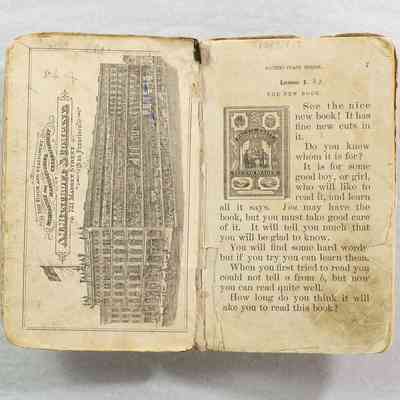 721 MARKET STREET
San Francisco
7
LESSON I.
THE NEW BOOK.
See the nice
new book! It has
fine new cuts in
it.
Do you know
whom it is for?
It is for some
good boy, or girl,
who will like to
read it, and learn
all it says. You may have the
book, but you must take good care
of it. It will tell you much that
you will be glad to know.
You will find some hard words
but if you try you can learn them.
When you first tried to read you
could not tell a from b, but now
you can read quite well.
How long do you think it will
ake you to read this book?